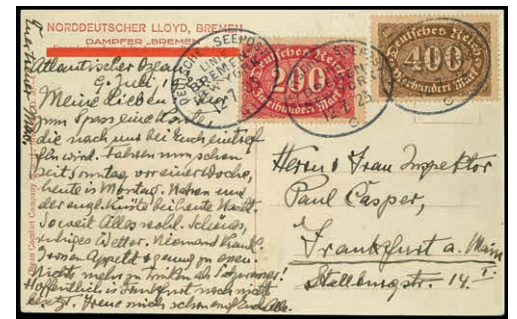 NORDDEUTSCHER LLOYD, BREMEN
DAMPFER „BREMEN
Atlantischer Ozean
9. Juli!
Meine Lieben! Nur
zum Spass eine Karte
die nach uns bei Euch eintref
fen wird. Fahren nun schon
seit Sonntag vor einer Woche,
heute is Montag.
der engl. Küste bei heute Nacht.
Soweit Alles wohl. Schönes,
ruhiges Wetter. Niemand krank.
Appetit genug zu essen.
Nichts mehr zu trinken als
Hoffentlich is Frankfurt noch nicht
besetzt. Freue mich schon auf Euch Alle.
DEUTSCHE SEEPOST
LINIE
BREMEN
NEW YORK
12.7
Deutsches Reich
200
Zweihundert Mark
12.7.23
Deutsches Reich
400
Vierhundert Mark
Herrn u Frau Inspektor
Paul Casper,
Frankfurt a. Main
Stellburgstr. 14 I